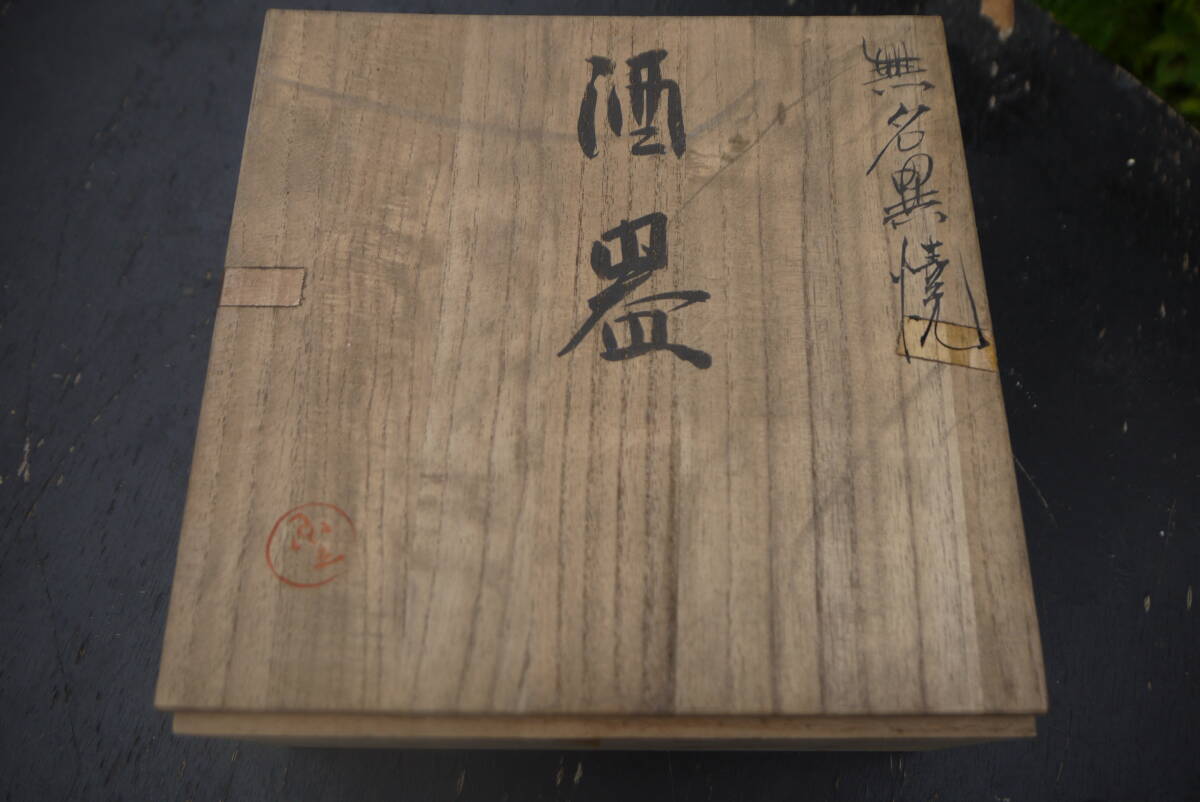 無名異焼
酒器